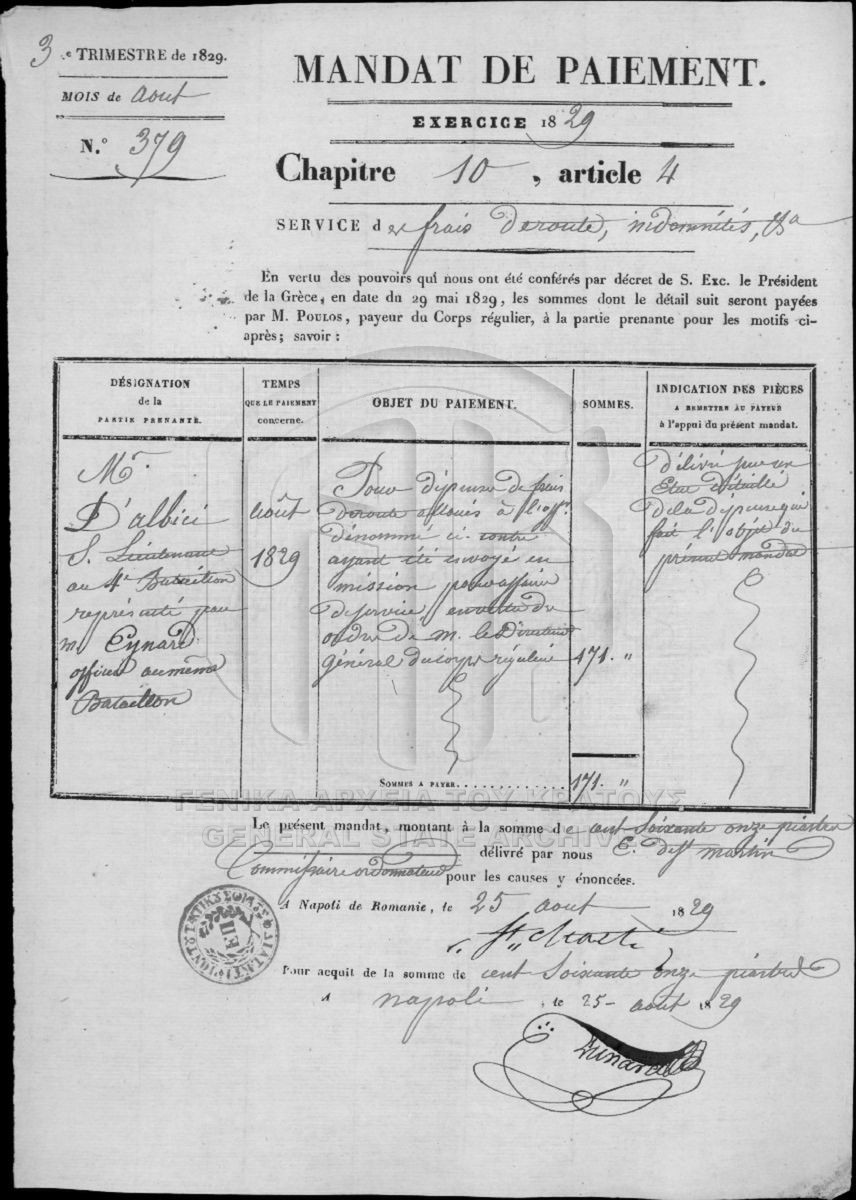 3e TRIMESTRE de 1829.
MOIS de aout
N.° 379
MANDAT DE PAIEMENT.
EXERCICE 1829
Chapitre 10, article 4
SERVICE des frais de route, indemnités, &a
En vertu des pouvoirs qui nous ont été conférés par décret de S. Exc. le Président
de la Grèce, en date du 29 mai 1829, les sommes dont le détail suit seront payées
par M. POULOS, payeur du Corps régulier, à la partie prenante pour les motifs ci-
après; savoir :
DÉSIGNATION
de la
PARTIE PRENANTE.
TEMPS
QUE LE PAIEMENT
concerne.
OBJET DU PAIEMENT.
SOMMES.
INDICATION DES PIÈCES
A REMETTRE AU PAYEUR
à l'appui du présent mandat.
Mr.
D'albici
S. Lieutenant
au 4e Bataillon
représenté par
m Eynard
officier au même
Bataillon
août
1829
Pour dépense de frais
de route alloués à l'offr.
dénommé ci-contre
ayant été envoyé en
mission pour affaire
de service en vertu du
ordre de M. le Directeur
général du corps régulier
171. "
Délivré par un
Etat détaillé
de la dépense qui
fait l'objet du
présent mandat
SOMMES A PAYER. 171. "
Le présent mandat, montant à la somme de cent soixante onze piastres
délivré par nous E. de St martin
Commissaire ordonnateur pour les causes y énoncées.
A Napoli de Romanie, le 25 aout 1829
Pour acquit de la somme de cent soixante onze piastres
A napoli, le 25 aout 1829
ΓΕΝΙΚΑ ΑΡΧΕΙΑ ΤΟΥ ΚΡΑΤΟΥΣ
GENERAL STATE ARCHIVES